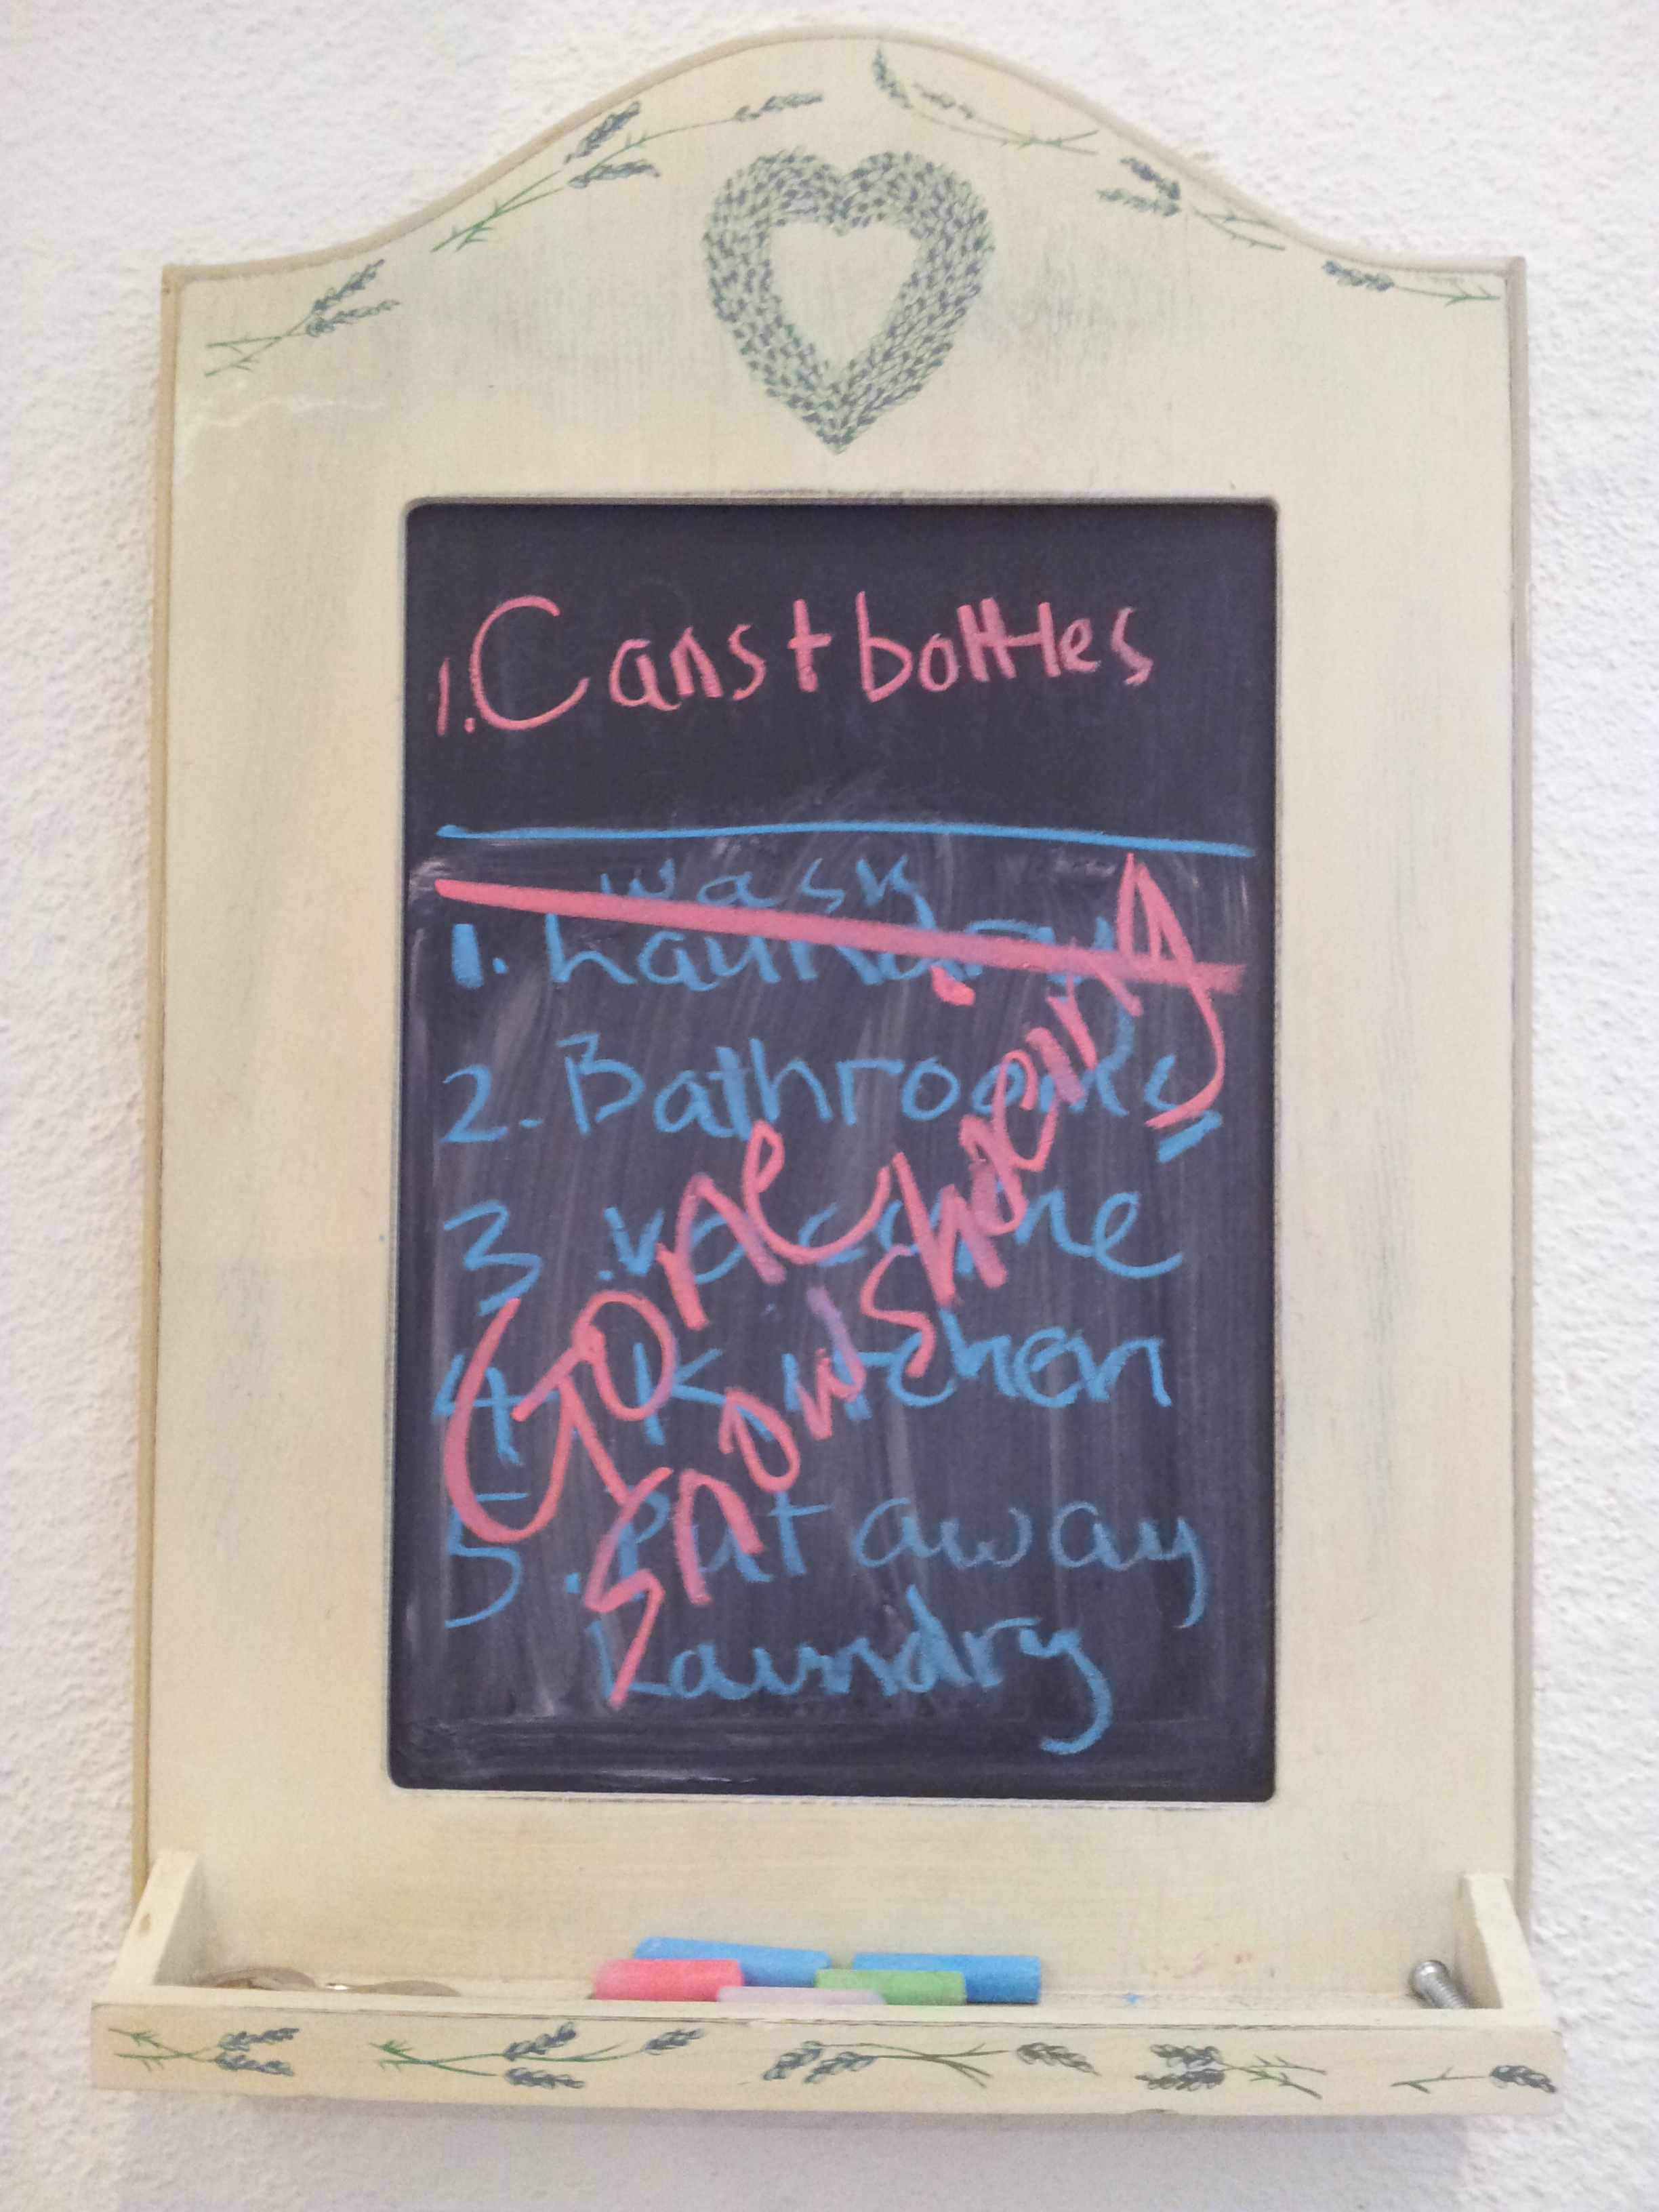 1. Cans + bottles
wash
1. Laundry
2. Bathrooms
3. vacume
4. Kitchen
5. Put away
Laundry
Gone
snowshoeing